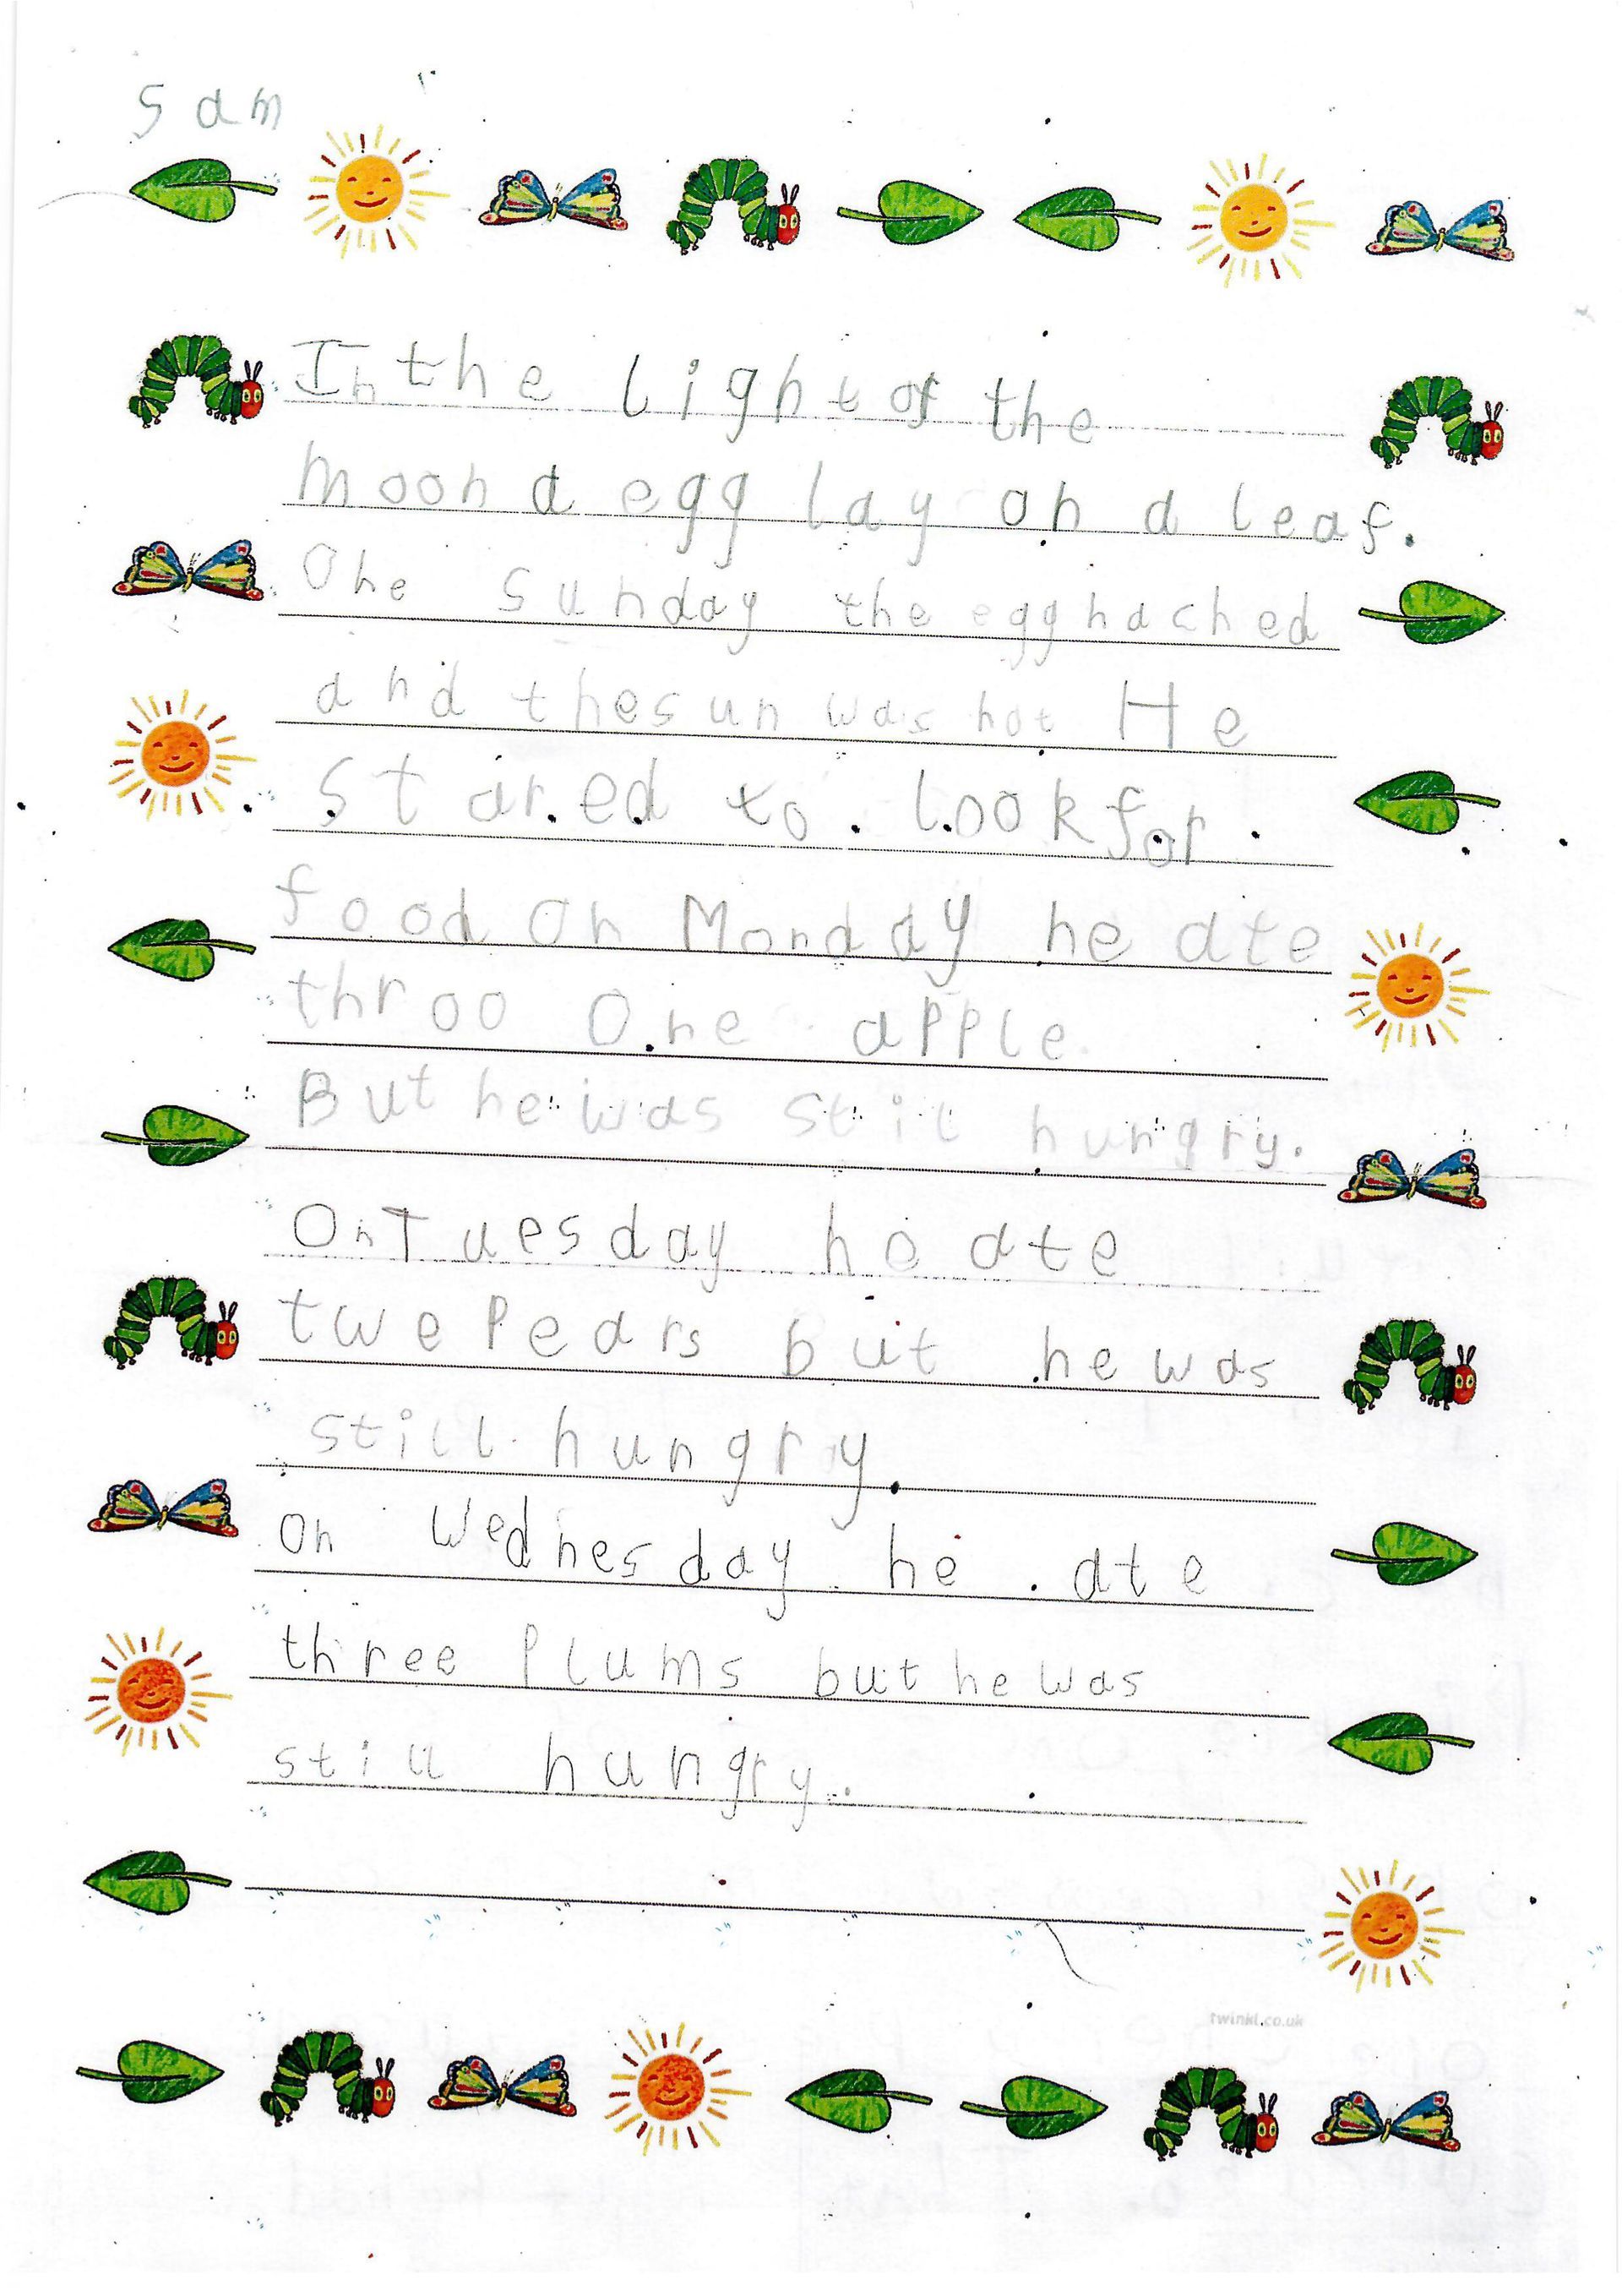 Sam
In the light of the
moon a egg lay on a leaf.
One Sunday the egg hached
and the sun was hot He
stared to look for
food on Monday he ate
throo One apple.
But he was still hungry.
On Tuesday he ate
twe Pears but he was
still hungry.
On Wednesday he ate
three Plums but he was
still hungry.
twinkl.co.uk